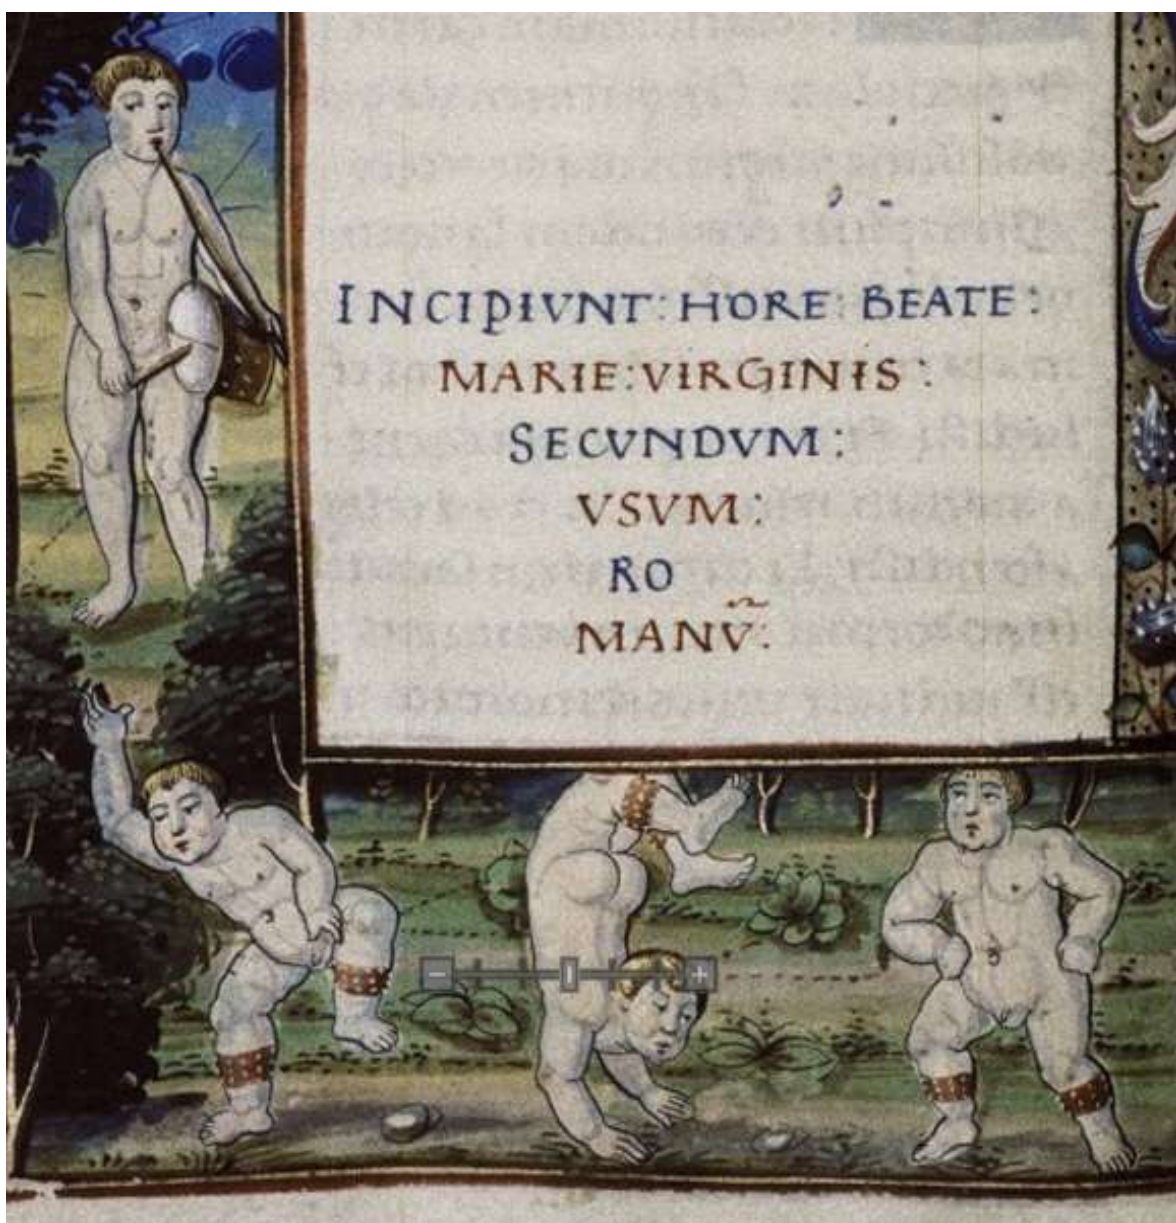 INCIPIVNT: HORE: BEATE:
MARIE: VIRGINIS:
SECVNDVM:
VSVM:
RO
MANṼ: